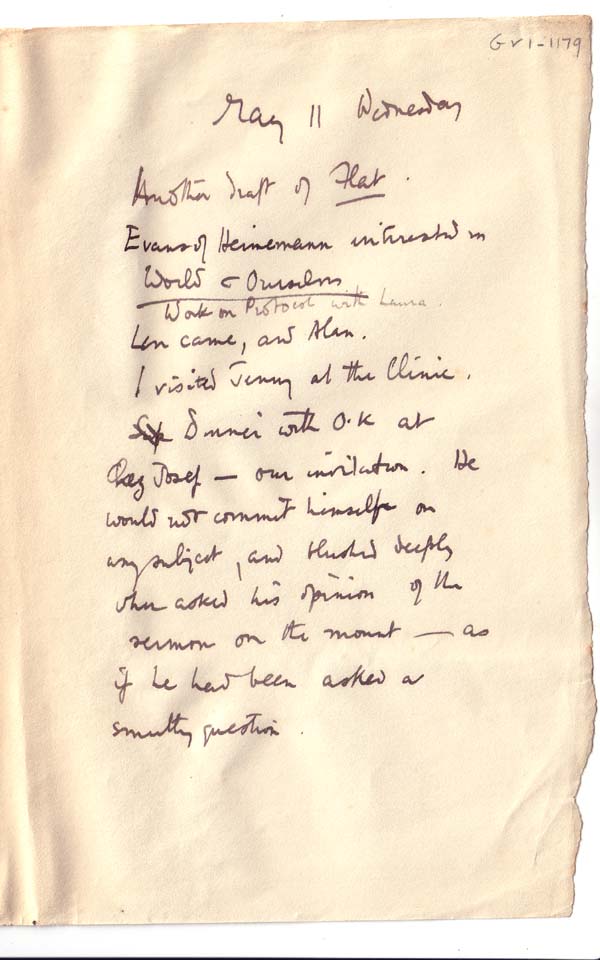 GV1-1179
May 11 Wednesday
Another draft of Flat.
Evans of Heinemann interested in
World & Ourselves
Work on Protocol with Laura.
Len came, and Alan.
I visited Jenny at the Clinic.
Dinner with O.K at
Chez Josef — our invitation. He
would not commit himself on
any subject, and blushed deeply
when asked his opinion of the
sermon on the mount — as
if he had been asked a
smutty question.